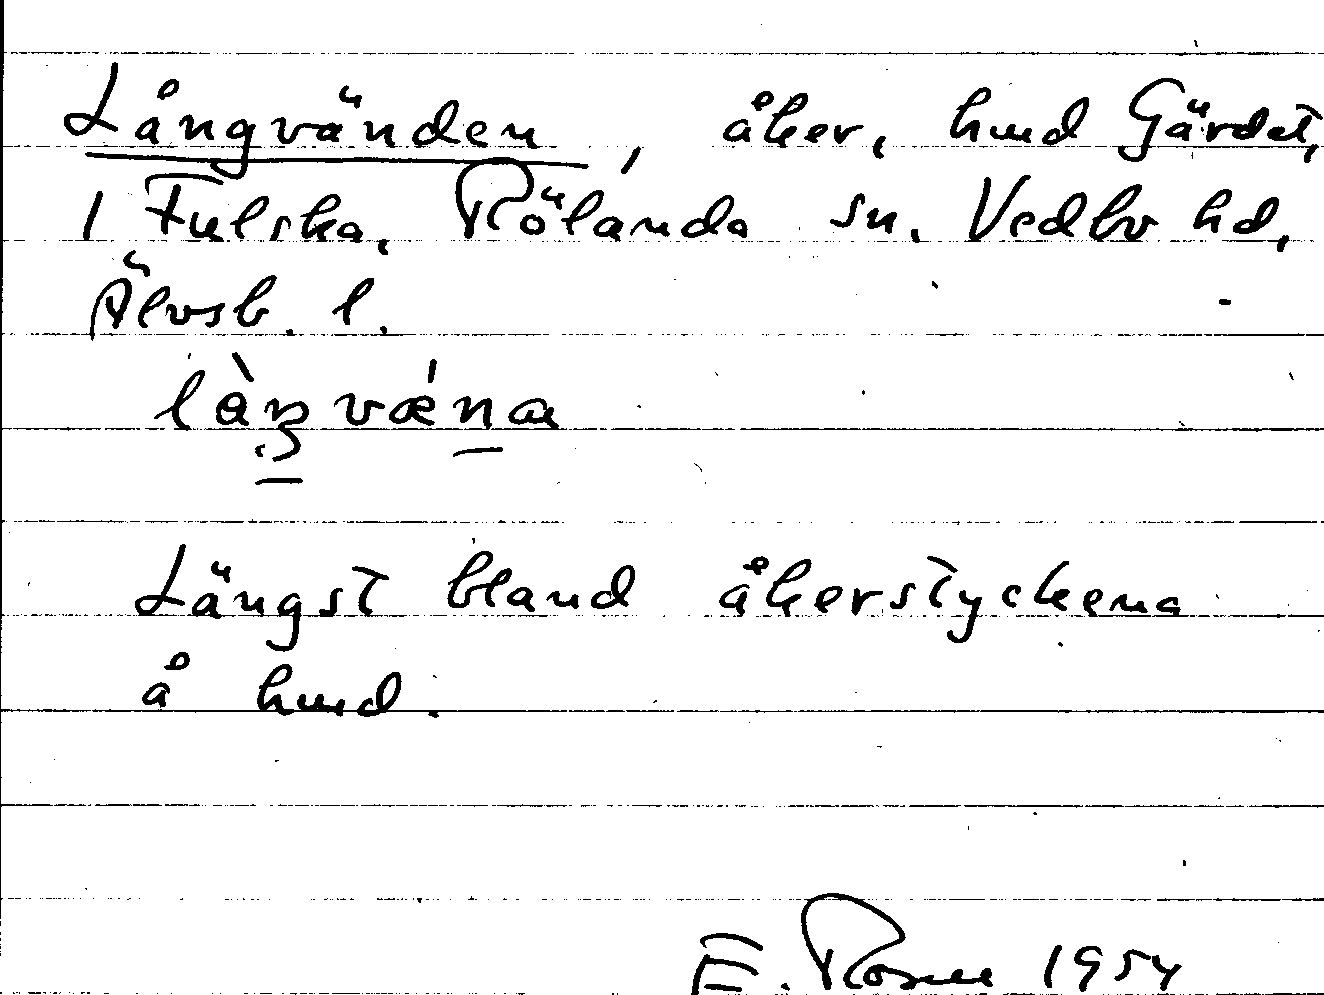 Långvänden, åker, hmd Gärdet,
1 Fulska, Rölanda sn. Vedbo hd,
Älvsb. l.
làŋvǽna
Längst bland åkerstyckena
å hmd.
E. Rosen 1954